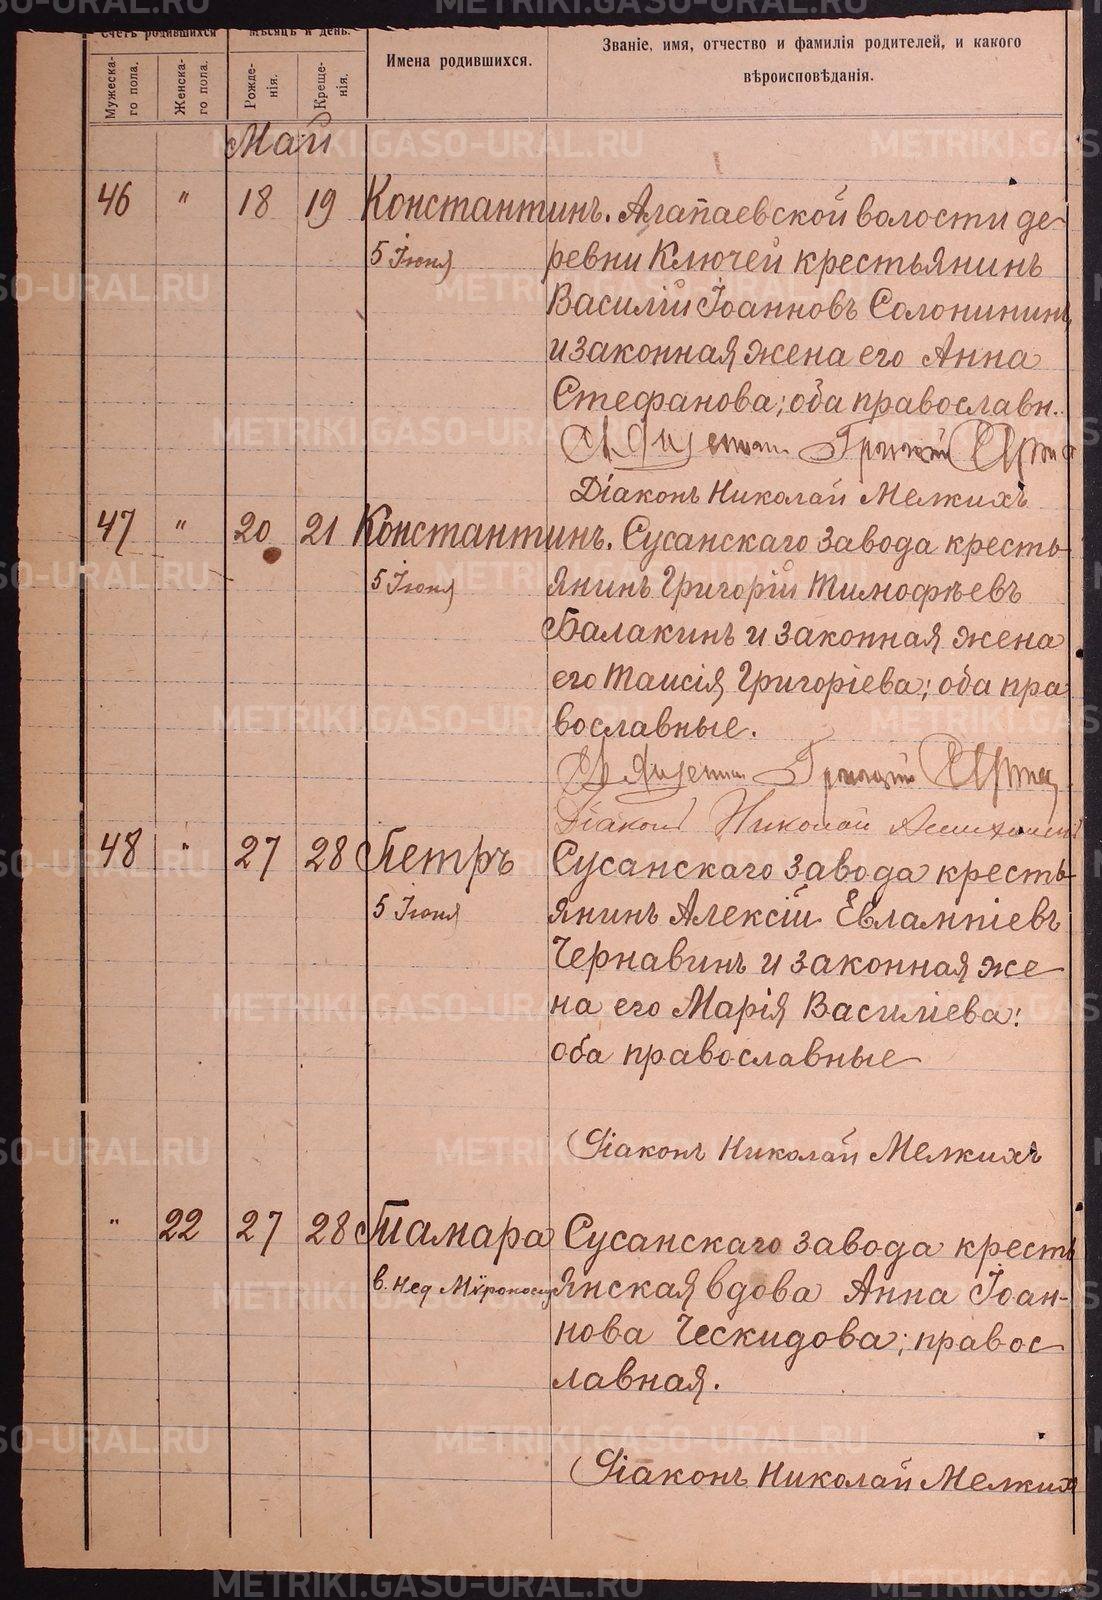 Счетъ родившихся
Мѣсяцъ и день.
Имена родившихся.
Званіе, имя, отчество и фамилія родителей, и какого
вѣроисповѣданія.
Мужеска-
го пола.
Женска-
го пола.
Рожде-
нія.
Креще-
нія.
Май
46 " 18 19 Константинъ. Алапаевской волости де-
5 Іюня ревни Ключей крестьянинъ
Василій Іоанновъ Солонининъ
и законная жена его Анна
Стефанова; оба православн.
Діаконъ Николай Мелкихъ
47 " 20 21 Константинъ. Сусанскаго завода кресть-
5 Іюня янинъ Григорій Тимофѣевъ
Балакинъ и законная жена
его Таисія Григоріева; оба пра
вославные.
Діаконъ Николай
48 " 27 28 Петръ Сусанскаго завода кресть-
5 Іюня янинъ Алексій Евлампіевъ
Чернавинъ и законная же-
на его Марія Василіева:
оба православные
Діаконъ Николай Мелкихъ
" 22 27 28 Тамара Сусанскаго завода кресть
в. Нед Мѵроносиц янская вдова Анна Іоан-
нова Ческидова; правос-
лавная.
Діаконъ Николай Мелкихъ
METRIKI.GASO-URAL.RU